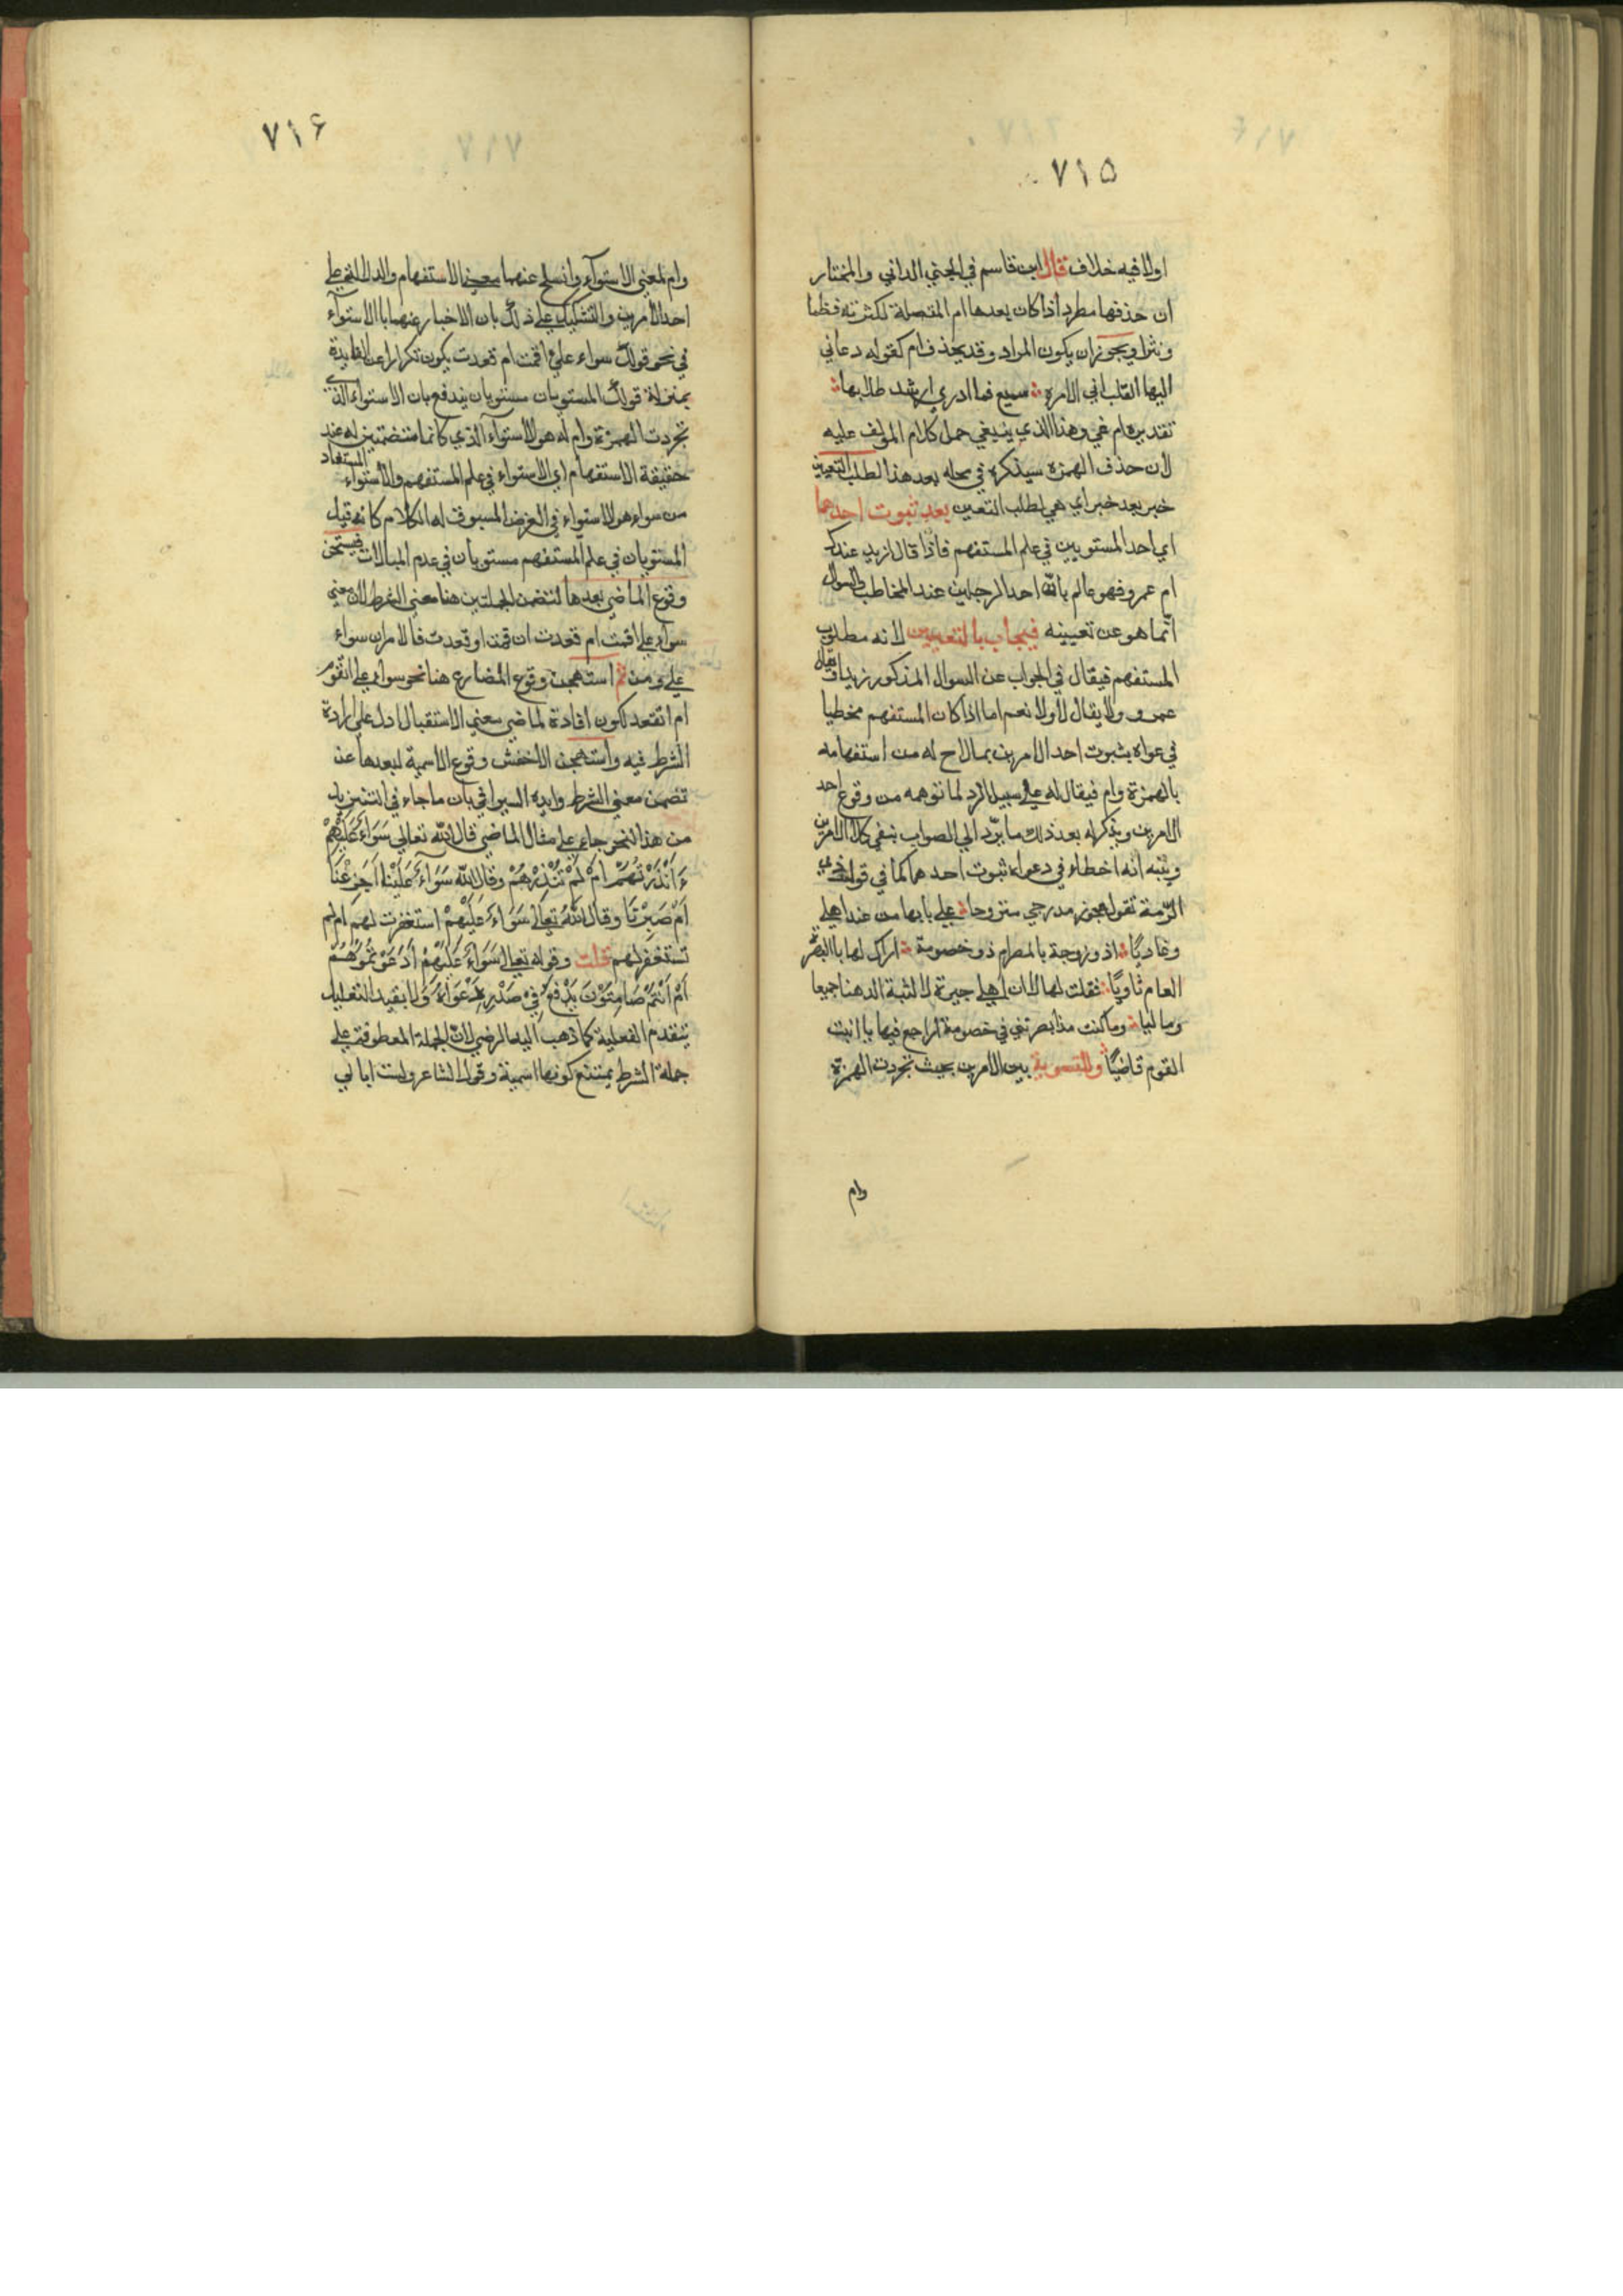 ٧١٥
اولا فيه خلاف قال ابن قاسم في الجني الداني والمختار
ان حذفها مطرد اذا كان بعدها ام المتصلة لكثرته نظما
ونثرا ويجوز ان يكون المراد وقد يحذف ام كقوله دعاني
اليها القلب اني لامره سميع فما ادري ارشد طلابها
تقديره ام غي وهذا الذي ينبغي حمل كلام المؤلف عليه
لان حذف الهمزة سيذكره في محله بعد هذا لطلب التعيين
خبر بعد خبر اي هي لطلب التعيين بعد ثبوت احدهما
اي احد المستويين في علم المستفهم فاذا قال ازيد عندك
ام عمرو فهو عالم بان احد الرجلين عند المخاطب والسوال
انما هو عن تعيينه فيجاب بالتعيين لانه مطلوب
المستفهم فيقال في الجواب عن السوال المذكور زيد او يقال
عمرو ولا يقال لا ولا نعم اما اذا كان المستفهم مخطيا
في عواه بثبوت احد الامرين بمالاح له من استفهامه
بالهمزة وام فيقال له علي سبيل الرد لما توهمه من وقوع احد
الامرين ويذكر له بعد ذلك ما يرد الي الصواب بنفي كلا الامرين
وينبه انه اخطاء في دعواه ثبوت احدهما كما في قول ذي
الرمة تقول عجوز مدرجي متروحا علي بابها من عند اهلي
وغاديا اذو زوجة بالمصر ام ذو خصومة اراك لها بالبصرة
العام ثاويا فقلت لها لا ان اهلي جيرة لاكثبة الدهنا جميعا
وماليا وما كنت مذ ابصرتني في خصومة اراجع فيها يا ابنت
القوم قاضيا والتسوية بين الامرين بحيث تجردت الهمزة
وام
٧١٦
وام لمعني الاستوآء وانسلخ عنهما معني الاستفهام والدلالة علي
احد الامرين والتشكيك علي ذلك بان الاخبار عنهما بالاستوآء
في نحو قولك سواء علي اقمت ام قعدت يكون تكرارا عن الفايدة
بمنزلة قولك المستويان مستويان يندفع بان الاستواء الذي
تجردت الهمزة وام له هو الاستوآء الذي كانتا متضمنتين له عند
حقيقة الاستفهام اي الاستواء في علم المستفهم والاستواء المستفاد
من سواء هو الاستواء في الغرض المسبوق له الكلام كانه قيل
المستويان في علم المستفهم مستويان في عدم المبالات فيستحق
وقوع الماضي بعدها لتضمن الجملتين هنا معني الشرط لان معني
سواء علي اقمت ام قعدت ان قمت او قعدت فالامران سواء
علي ومن ثم استهجن وقوع المضارع هنا نحو سواء علي اتقوم
ام اتقعد لكون افادة لماضي معني الاستقبال ادل علي ارادة
الشرط فيه واستهجن الاخفش وقوع الاسمية لبعدها عن
تضمن معني الشرط وايده السيرافي بان ما جاء في التنزيل
من هذا النحو جاء علي مثال الماضي قال الله تعالي سَوَاءٌ عَلَيْهِمْ
ءَاَنْذَرْتَهُمْ اَمْ لَمْ تُنْذِرْهُمْ وقال الله سَوَآءٌ عَلَيْنَا اَجَزِعْنَا
اَمْ صَبَرْنَا وقال الله تعالي سَوَاءٌ عَلَيْهِمْ استغفرت لهم ام لم
تستغفر لهم قلت وقوله تعالي سَوَاءٌ عَلَيْهِمْ اَدَعَوْتُمُوهُمْ
اَمْ اَنْتُمْ صَامِتُوْنَ يَدْفَعُ فِيْ صَدْرِ دَعْوَاهُ ولا يفيد التعليل
بتقدم الفعلية كما ذهب اليه الرضي لان الجملة المعطوفة علي
جملة الشرط يمتنع كونها اسمية وقول الشاعر ولست ابالي